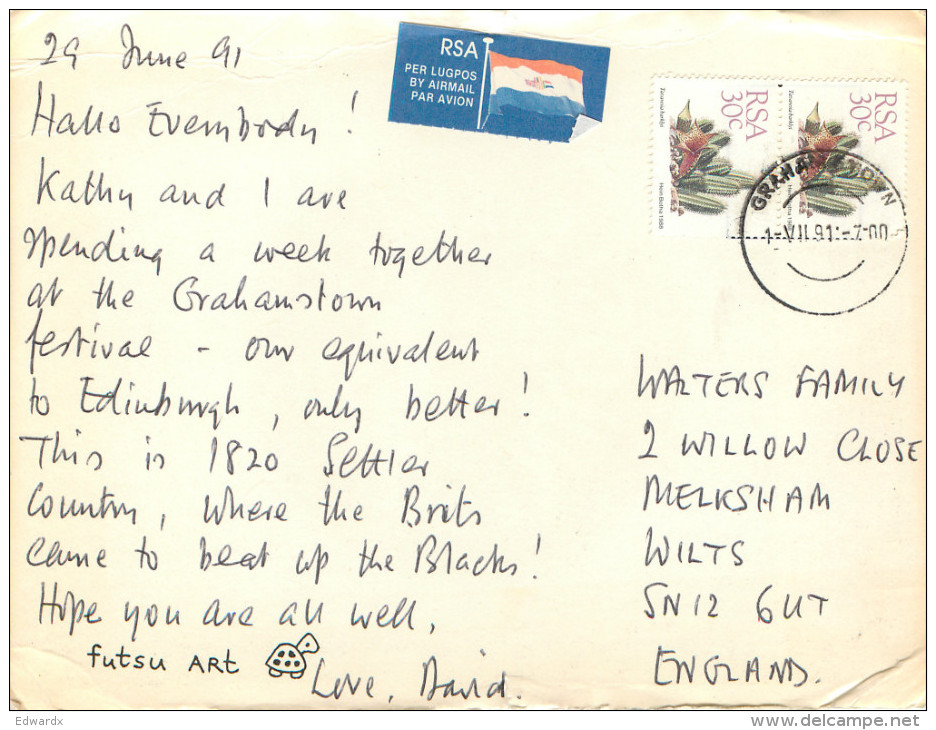 29 June 91
Hallo Everybody!
Kathy and I are
spending a week together
at the Grahamstown
festival - our equivalent
to Edinburgh, only better!
This is 1820 Settler
Country, where the Brits
came to beat up the Blacks!
Hope you are all well,
futsu ARt
Love, David.
RSA
PER LUGPOS
BY AIRMAIL
PAR AVION
RSA
30c
Hein Botha 1988
RSA
30c
Hein Botha
GRAHAMSTOWN
1-VII.91-7.00
WALTERS FAMILY
2 WILLOW CLOSE
MELKSHAM
WILTS
SN12 6UT
ENGLAND.
Edwardx
www.delcampe.net